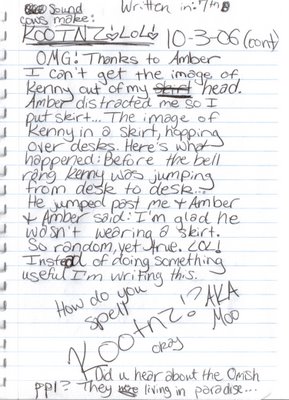 Sound Written in: 7th
cows make:
KOOTNZ LOL 10-3-06 (cont)
OMG! Thanks to Amber
I can't get the image of
Kenny out of my skirt head.
Amber distracted me so I
put skirt... The image of
Kenny in a skirt, hopping
over desks. Here's what
happened: Before the bell
rang Kenny was jumping
from desk to desk...
He jumped past me & Amber
& Amber said: I'm glad he
wasn't wearing a skirt.
So random, yet true. LOL!
Instead of doing something
useful I'm writing this.
How do you
spell
KOOTNZ!? AKA
Moo
okay
Did u hear about the Omish
ppl? They living in paradise...